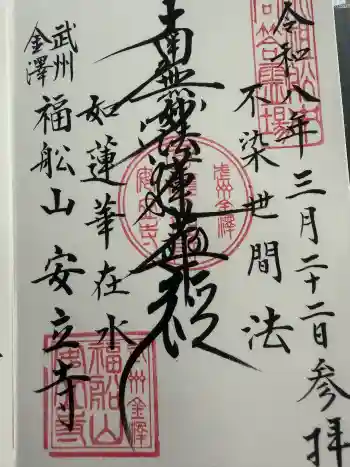 令和八年三月二十二日参拝
不染世間法
南無妙法蓮華経
如蓮華在水
武州
金澤
福舩山 安立寺
武州金澤
福舩山
安立寺